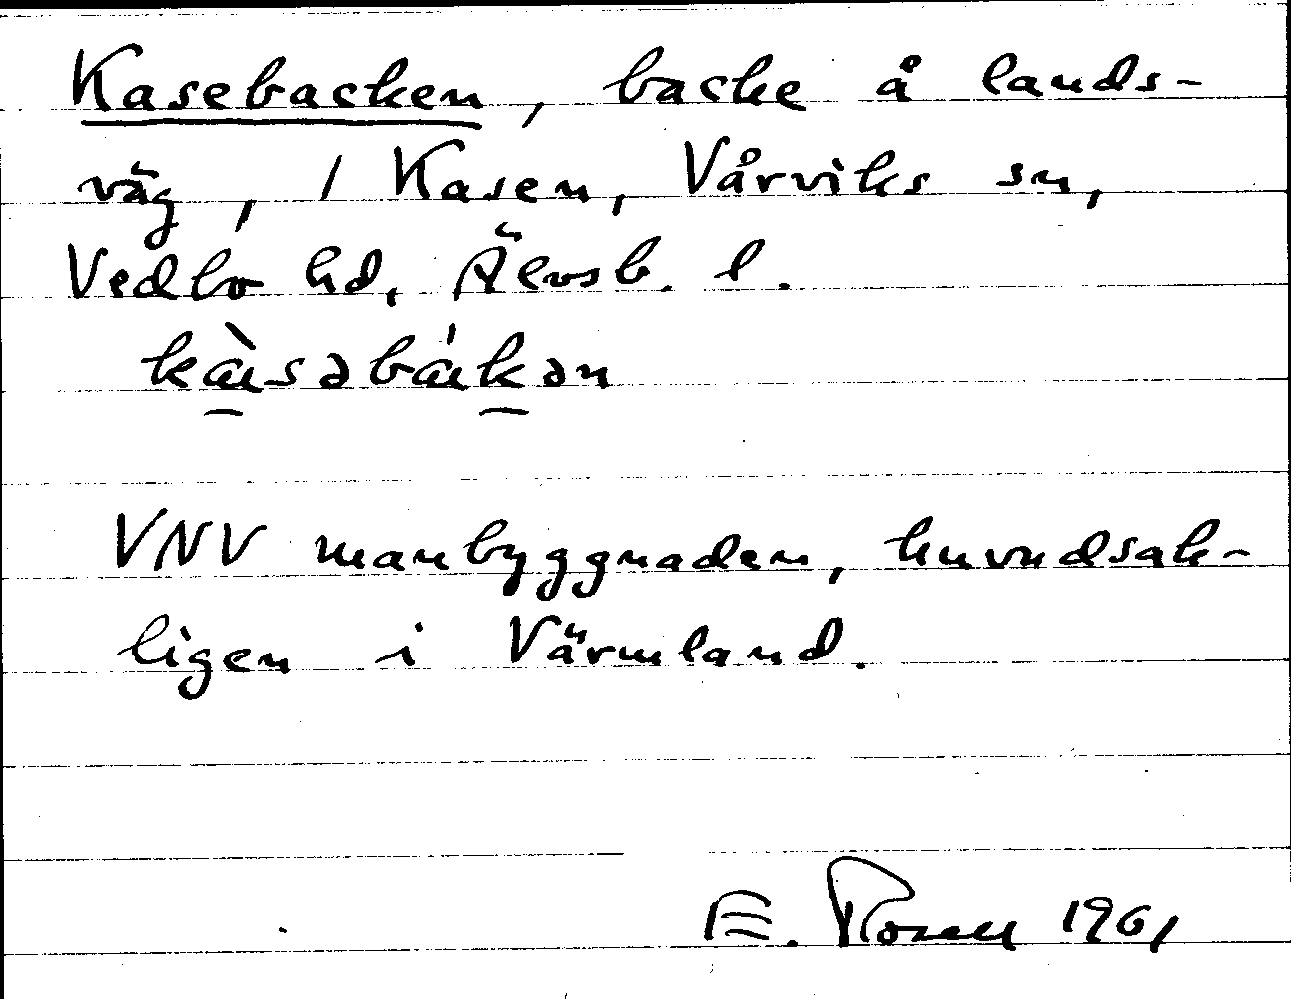 Kasebacken, backe å lands-
väg, 1 Kasen, Vårviks sn,
Vedbo hd, Älvsb. l.
kàsəbákən
VNV manbyggnaden, huvudsak-
ligen i Värmland.
E. Rosell 1961